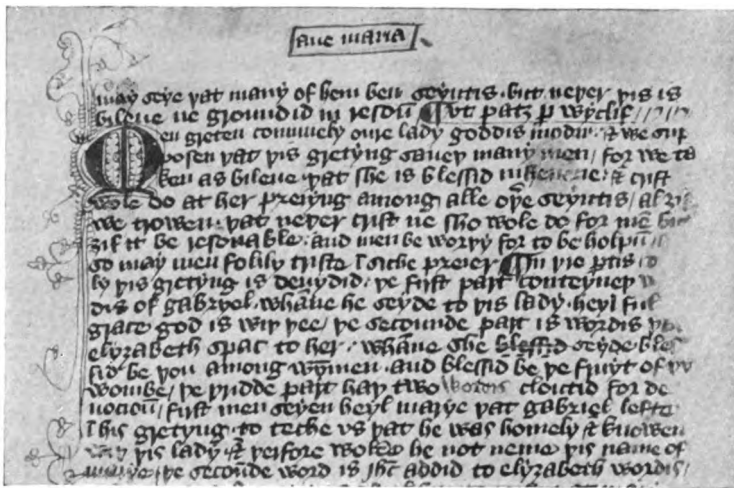 aue maria
may seye þat many of hem ben seyntis · but neþer þis is
bileue ne groundid in resoū ¶ vt patꝫ ꝑ wyclif
Men greten comunely oure lady goddis modir · & we sup
posen þat þis gretyng saueþ many men / for we ta
ken as bileue · þat she is blessid in heuene · & crist
wole do at her preiyng among alle oþe seyntis / al ȝif
we trowen · þat neþer crist ne sho wole do for mē but
ȝif it be resonable · and men be worþy for to be holpū
so may men folily triste ī siche preier ¶ In þre ꝑtis
by þis gretyng is deuydid · þe first part conteyneþ
dis of gabryel · whāne he seyde to þis lady · heyl ful
grace god is wiþ þee / þe secounde part is wordis
elyzabeth spac to her · whāne she blessid seyde bles
sid be þou among wymen · and blessid be þe fruyt of
wombe / þe þridde part haþ two wordis cloutid for de
uocioū / first men seyen heyl marye þat gabriel lefte
ī his gretyng · to teche vs þat he was homely & knowen
wiþ þis lady · & þerfore wolde he not neme þis name of
marye · þe secoūde word is ihc addid to elyzabeth wordis /